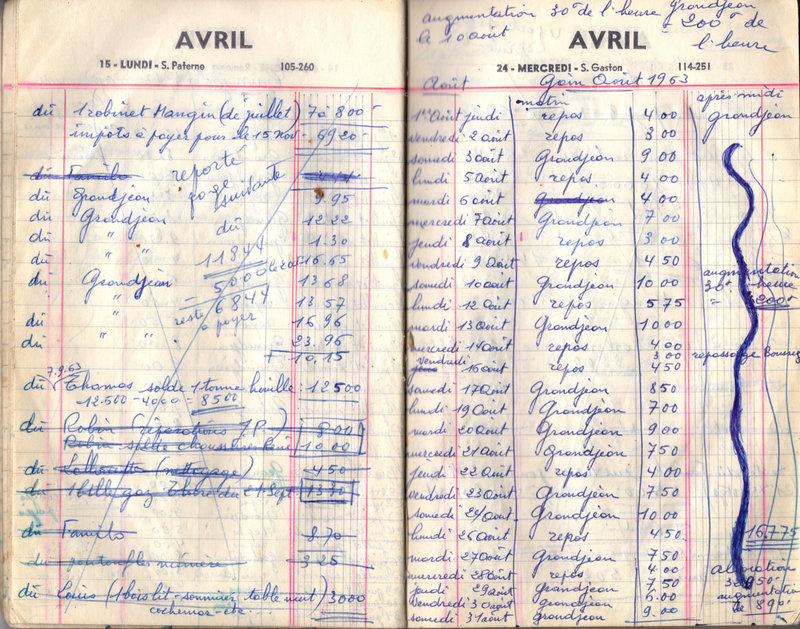 AVRIL
15 - LUNDI - S. Paterne 105-260
du 1 robinet Mangin (de juillet) 7 à 800
impôts à payer pour le 15 Nov - 6920
du Familo
reporté
page
suivante
du Grandjean 9.95
du Grandjean 12.22
du
du " " 1.30
11844
du " " 16.65
5000
du Grandjean 13 68
reste 6844
à payer
du " 13.57
du " 16.96
du " " 23.96
+ 10.15
7.9.63
du Thomas solde 1 tonne houille 12500
12.500 - 4000 = 8500
du Robin (réparations 7P.) 800
Robin solde chaussures 1000
du (nettoyage) 450
du 1 btlle gaz du 21 Sept 1330
du Familo 8.70
du pantoufles mémère 325
du Louis (1 bois lit - sommier table nuit) 3000
cochemar - etc.
augmentation 30 de l'heure Grandjean
le 10 août = 200 de
l'heure
AVRIL
24 - MERCREDI - S. Gaston 114-251
Août Gain Août 1963
matin après-midi
Grandjean
1er Août jeudi repos 4 00
vendredi 2 août repos 3 00
samedi 3 août Grandjean 9 00
lundi 5 août repos 4 00
mardi 6 août Grandjean 4 00
mercredi 7 août Grandjean 7 00
jeudi 8 août repos 3 00
vendredi 9 Août repos 4 50
samedi 10 août Grandjean 10 00
augmentation
30 heure
= 200
lundi 12 Août repos 5 75
mardi 13 Août Grandjean 10 00
mercredi 14 Août repos 4 00
3 00
vendredi 16 août repos 4 50
repassage
samedi 17 Août Grandjean 8 50
lundi 19 Août Grandjean 7 00
mardi 20 Août Grandjean 9 00
mercredi 21 Août Grandjean 7 50
jeudi 22 Août repos 4 00
vendredi 23 Août Grandjean 7 50
samedi 24 Août Grandjean 10 00
lundi 26 Août repos 4 50
16.775
mardi 27 Août Grandjean 7 50
mercredi 28 Août repos 4 00
jeudi 29 août Grandjean 7 50
vendredi 30 août grandjean 6 00
augmentation
de 890
samedi 31 août grandjean 9 00